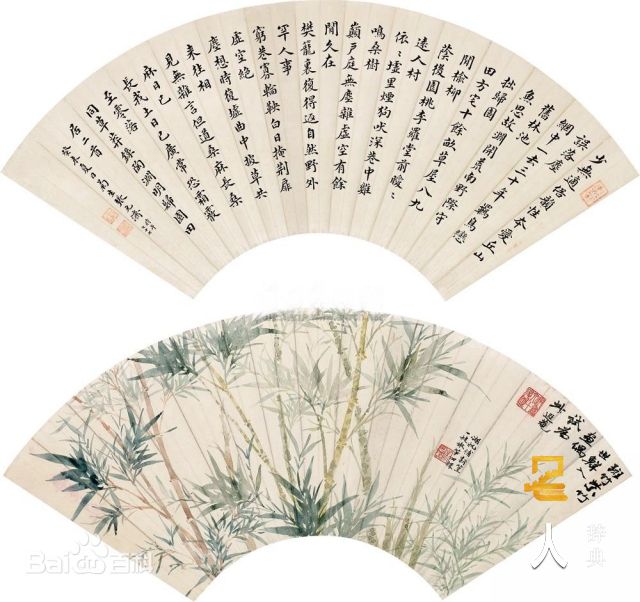 少無適俗韻性本愛丘山
誤落塵
網中一去三十年羈鳥戀
舊林
池魚思故淵開荒南野際守
拙歸園
田方宅十餘畝草屋八九
間榆柳
蔭後園桃李羅堂前曖曖
遠人村
依〻墟里煙狗吠深巷中雞
鳴桑樹
巔戶庭無塵雜虛室有餘
閒久在
樊籠裏復得返自然野外
罕人事
窮巷寡輪鞅白日掩荊扉
虛室絕
塵想時復墟曲中披草共
來往相
見無雜言但道桑麻長桑
麻日已
長我土日已廣常恐霜霰
至零落
同草莽錄陶淵明歸園田
居二首
癸未夏日菊生張元濟
斑竹紫竹
世鮮人
畫偶
試為
Bai百科
人
辞典